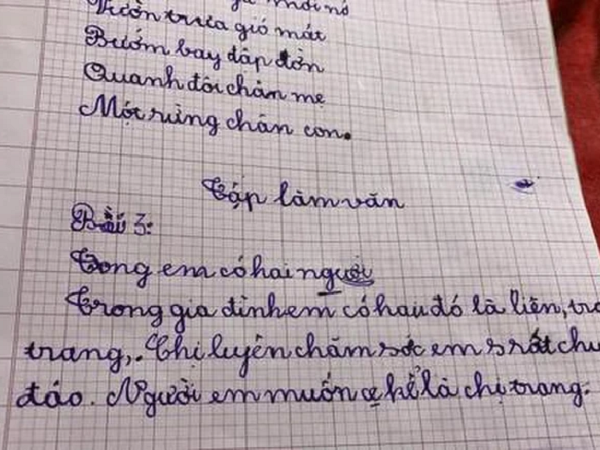 mới nở
Vườn trưa gió mát
Bướm bay dập dờn
Quanh đôi chân mẹ
Một rừng chân con.
Tập làm văn
Bài 3:
Trong em có hai người
Trong gia đình em có hai đó là liên,
trang,. Chị luyên chăm sóc em rất chu
đáo. Người em muốn kể là chị trang.